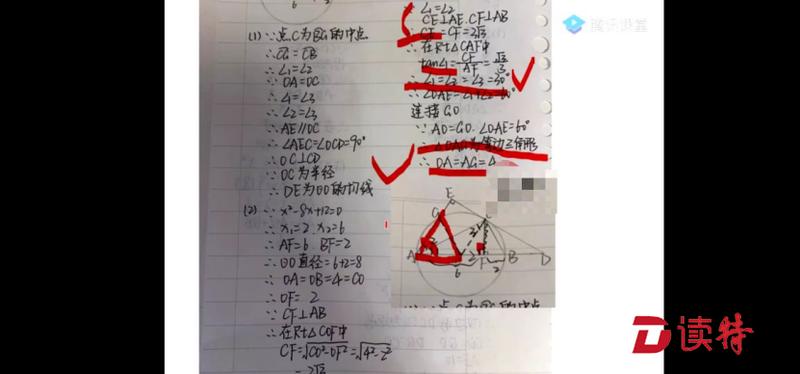 (1) ∵点C为BG的中点
∴CG=CB
∴∠1=∠2
∵OA=OC
∴∠1=∠3
∴∠2=∠3
∴AE∥OC
∴∠AEC=∠OCD=90°
∴OC⊥CD
∵OC为半径
∴DE为⊙O的切线
(2) ∵x²-8x+12=0
∴x₁=2 x₂=6
∴AF=6 BF=2
∴⊙O直径=6+2=8
∴OA=OB=4=CO
∴OF=2
∵CF⊥AB
∴在Rt△COF中
CF=√CO²-OF²=√4²-2²
=2√3
∵∠1=∠2
CE⊥AE.CF⊥AB
∴CE=CF=2√3
∴在Rt△CAF中
tan∠1=CF/AF=√3/3
∴∠1=∠2=∠3=30°
∴∠OAE=∠1+∠2=60°
连接GO
∵AO=GO.∠OAE=60°
∴△OAG为等边三角形
∴OA=AG=4
E
G
A
6
2
F
B
D
2
腾讯课堂
读特